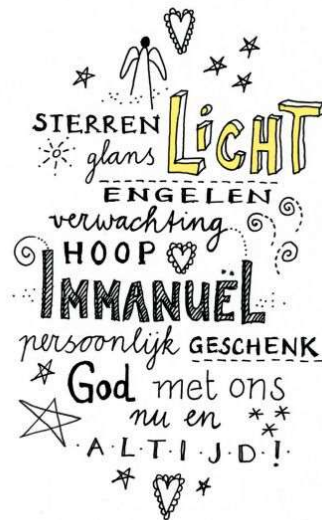 STERREN LiCHT
glans
ENGELEN
verwachting
HOOP
IMMANUËL
persoonlijk GESCHENK
God met ons
nu en
·A·L·T·I·J·D·!